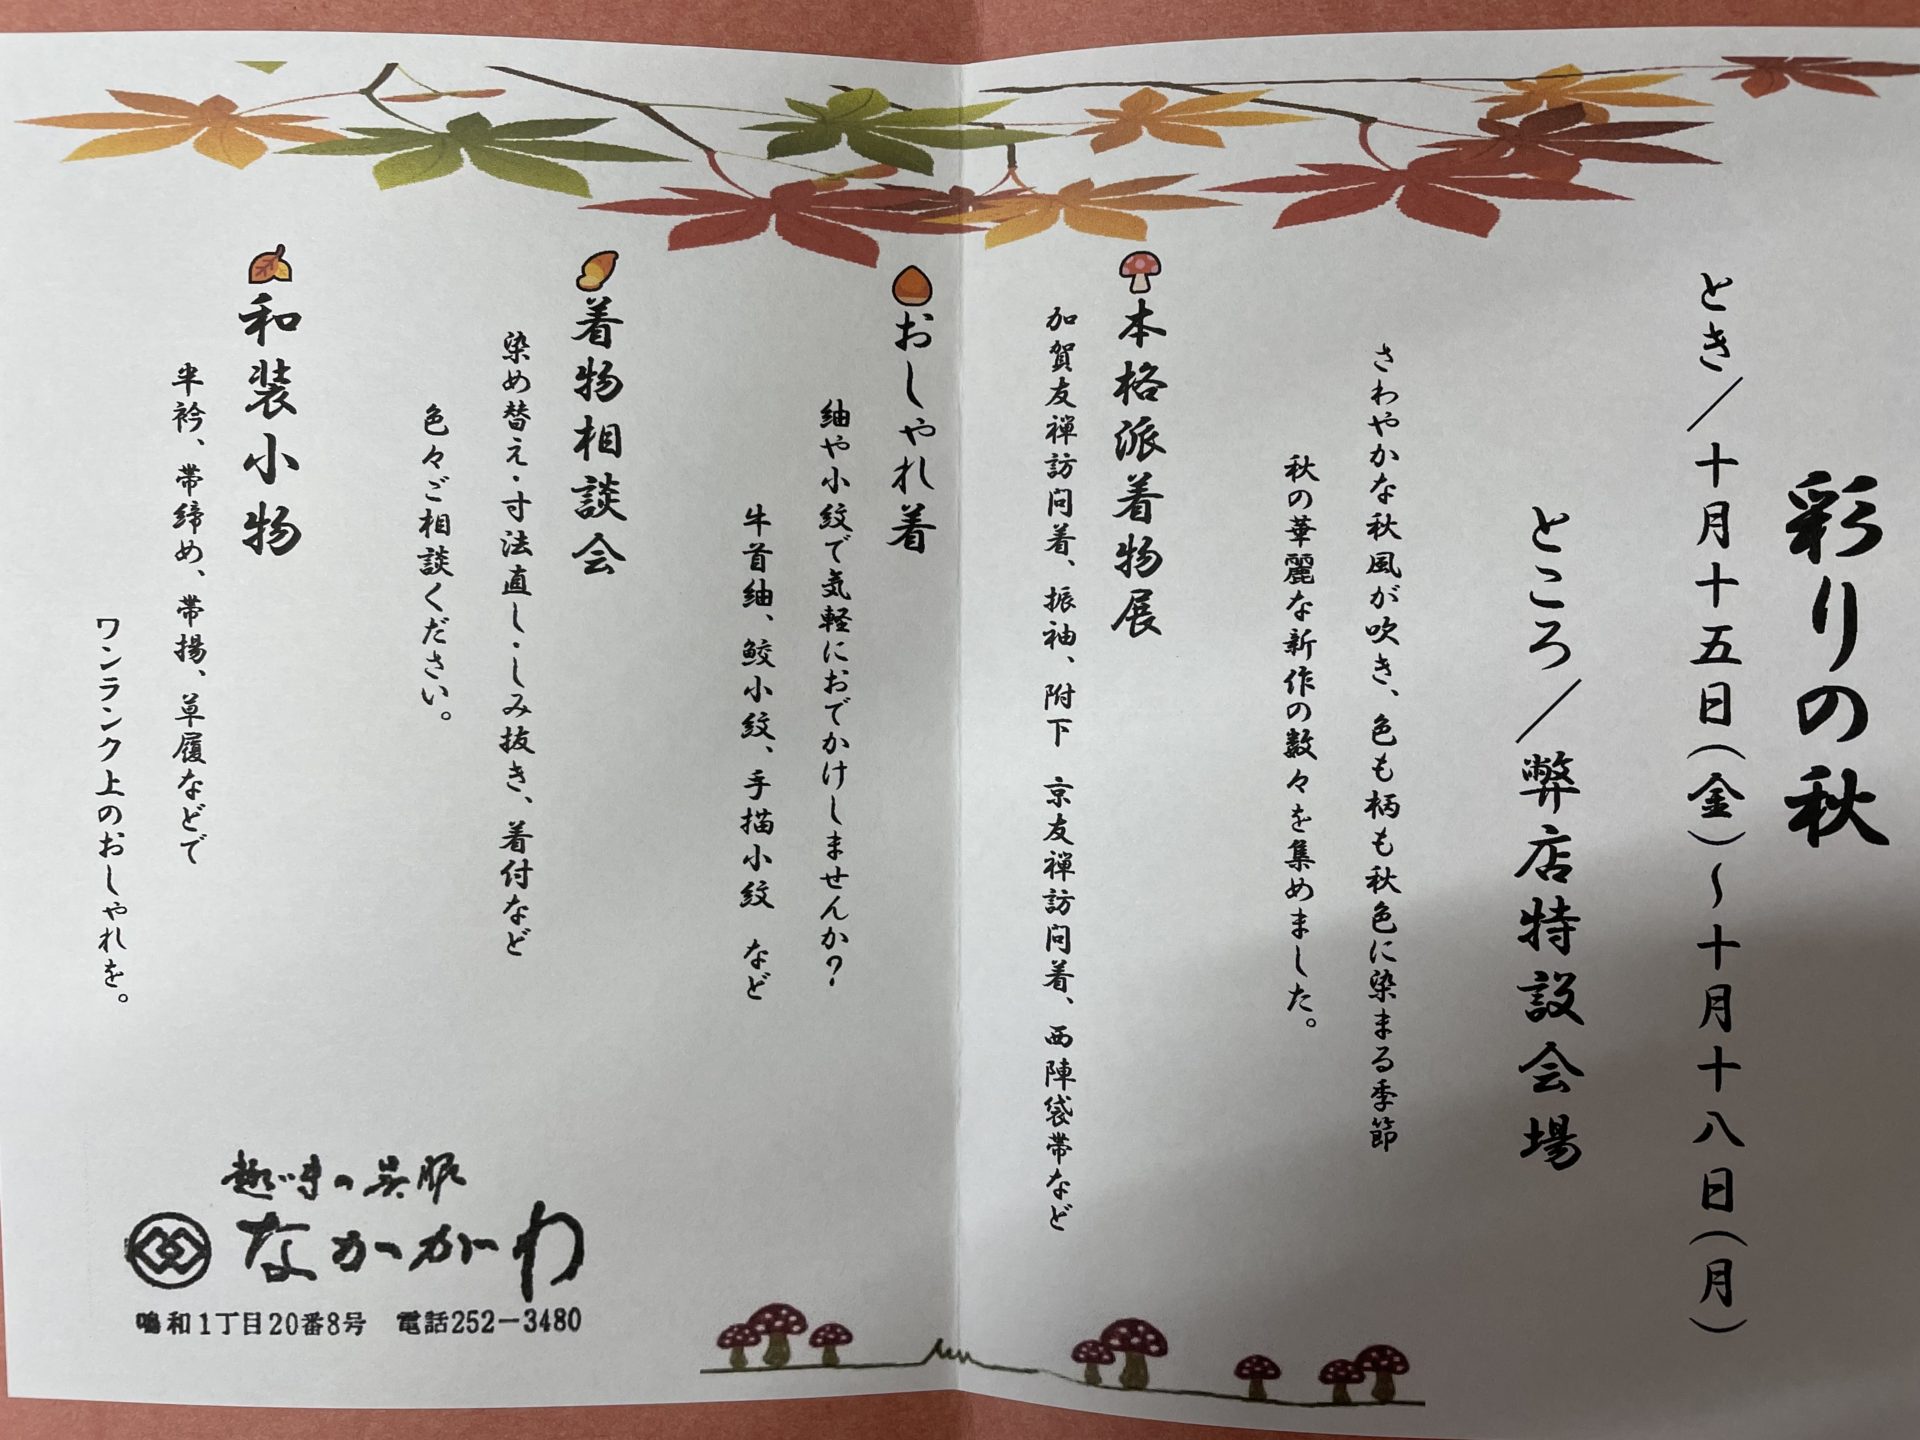 彩りの秋
とき／十月十五日(金)〜十月十八日(月)
ところ／弊店特設会場
さわやかな秋風が吹き、色も柄も秋色に染まる季節
秋の華麗な新作の数々を集めました。
本格派着物展
加賀友禅訪問着、振袖、附下　京友禅訪問着、西陣袋帯など
おしゃれ着
紬や小紋で気軽におでかけしませんか?
牛首紬、鮫小紋、手描小紋　など
着物相談会
染め替え・寸法直し・しみ抜き、着付など
色々ご相談ください。
和装小物
半衿、帯締め、帯揚、草履などで
ワンランク上のおしゃれを。
趣味の呉服
なかがわ
鳴和1丁目20番8号　電話252−3480